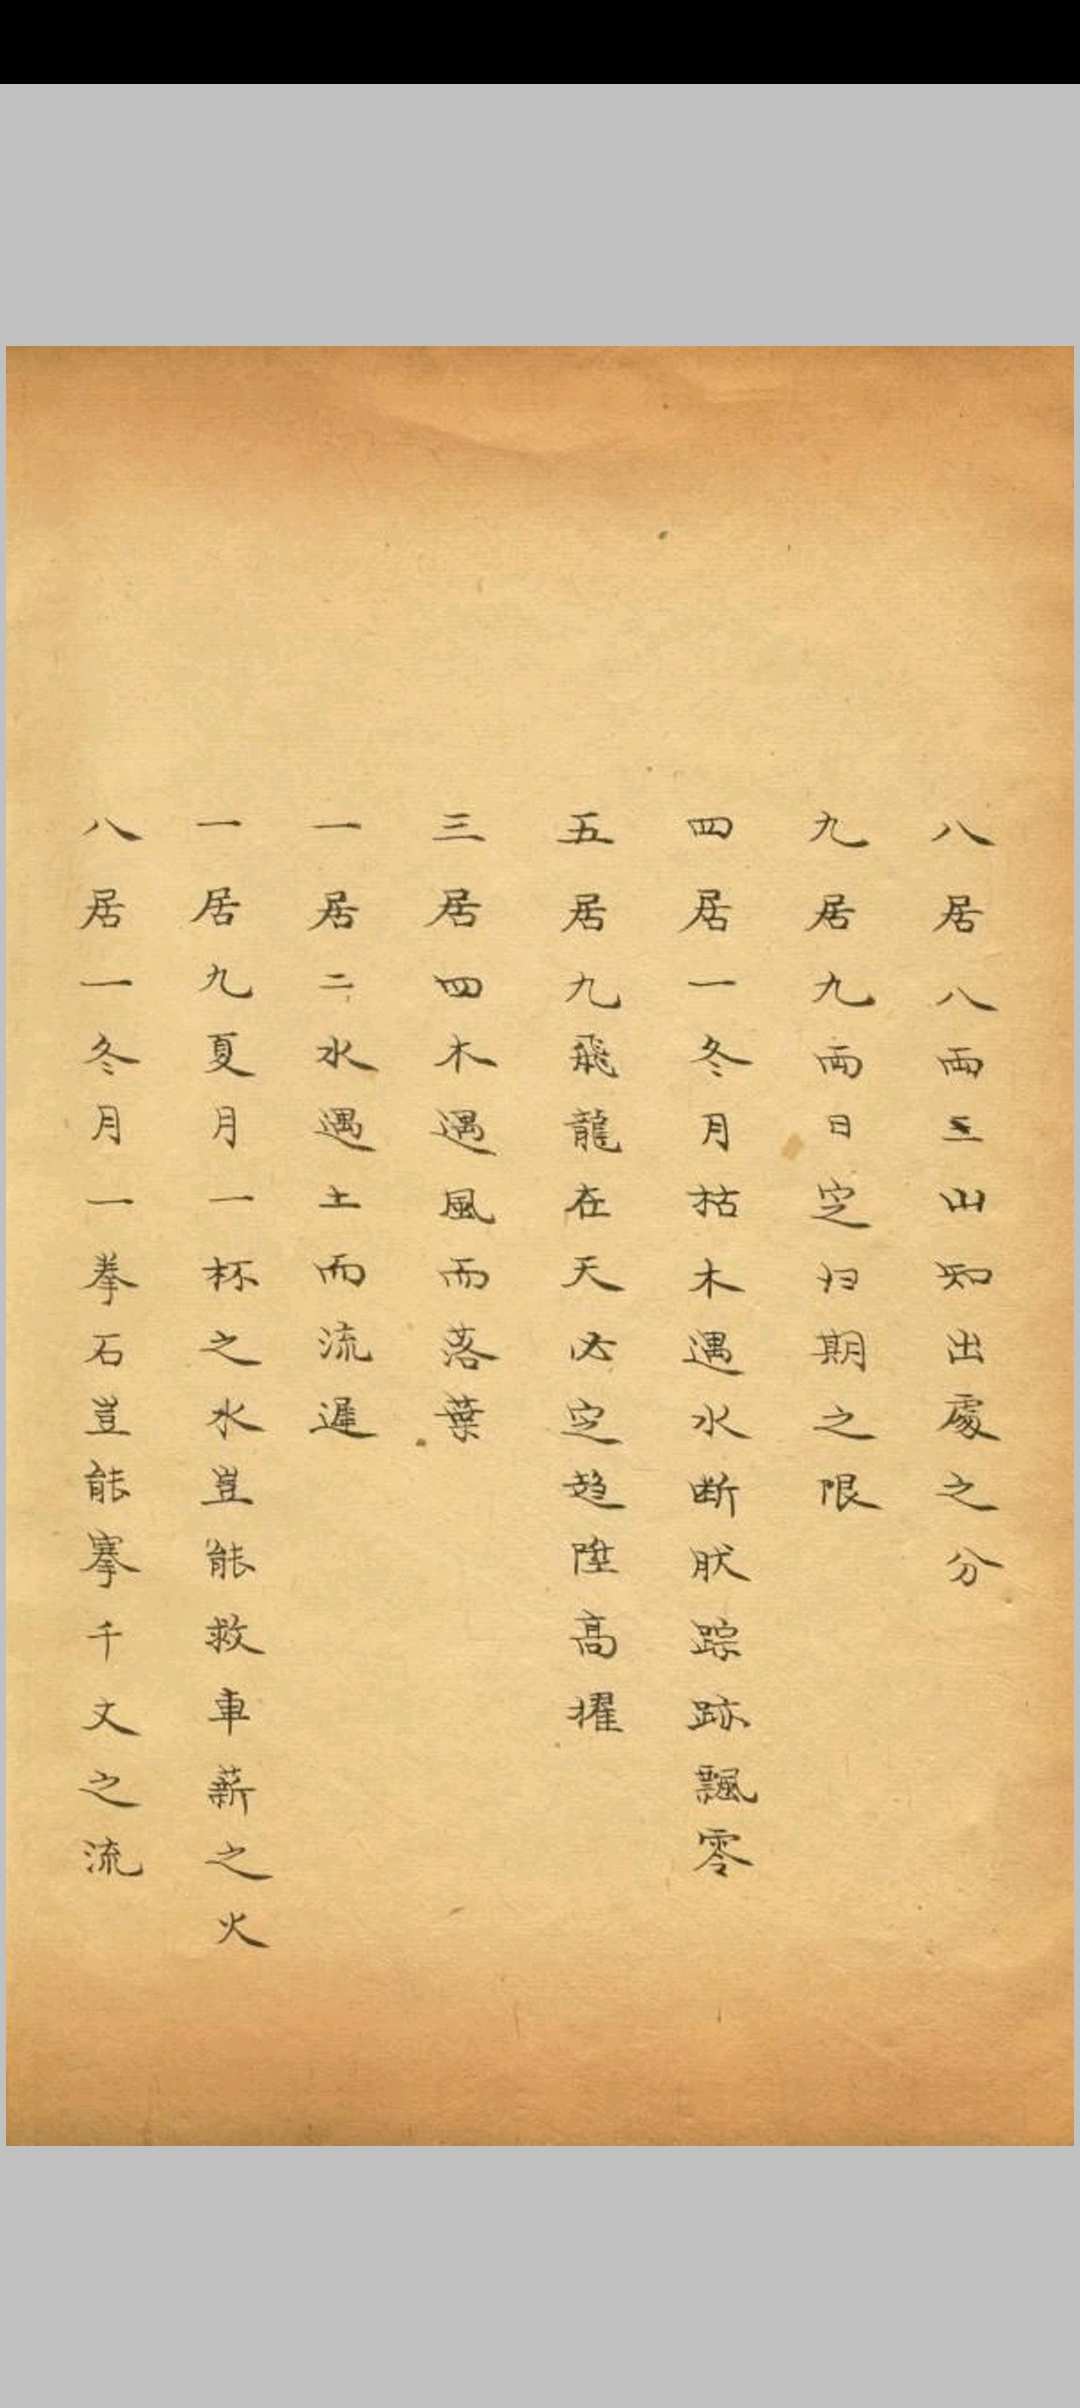 八居八両山知出處之分
九居九両日定归期之限
四居一冬月枯木遇水断肰踪跡飄零
五居九飛龍在天必定趋陞高擢
三居四木遇風而落葉
一居二水遇土而流遲
一居九夏月一杯之水豈能救車薪之火
八居一冬月一拳石豈能搴千丈之流